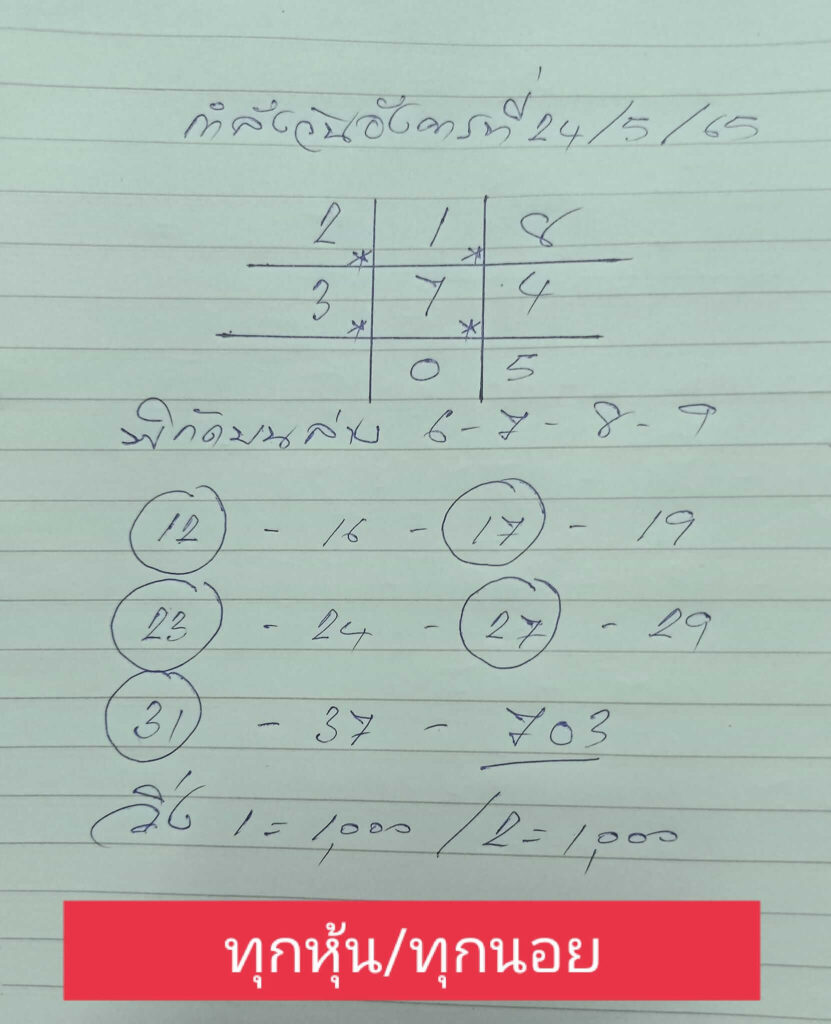 กำลังวันอังคารที่ 24/5/65
2 1 8
* *
3 7 4
* *
0 5
พิกัดบนล่าง 6-7-8-9
12 - 16 - 17 - 19
23 - 24 - 27 - 29
31 - 37 - 703
วิ่ง 1=1,000/2=1,000
ทุกหุ้น/ทุกนอย